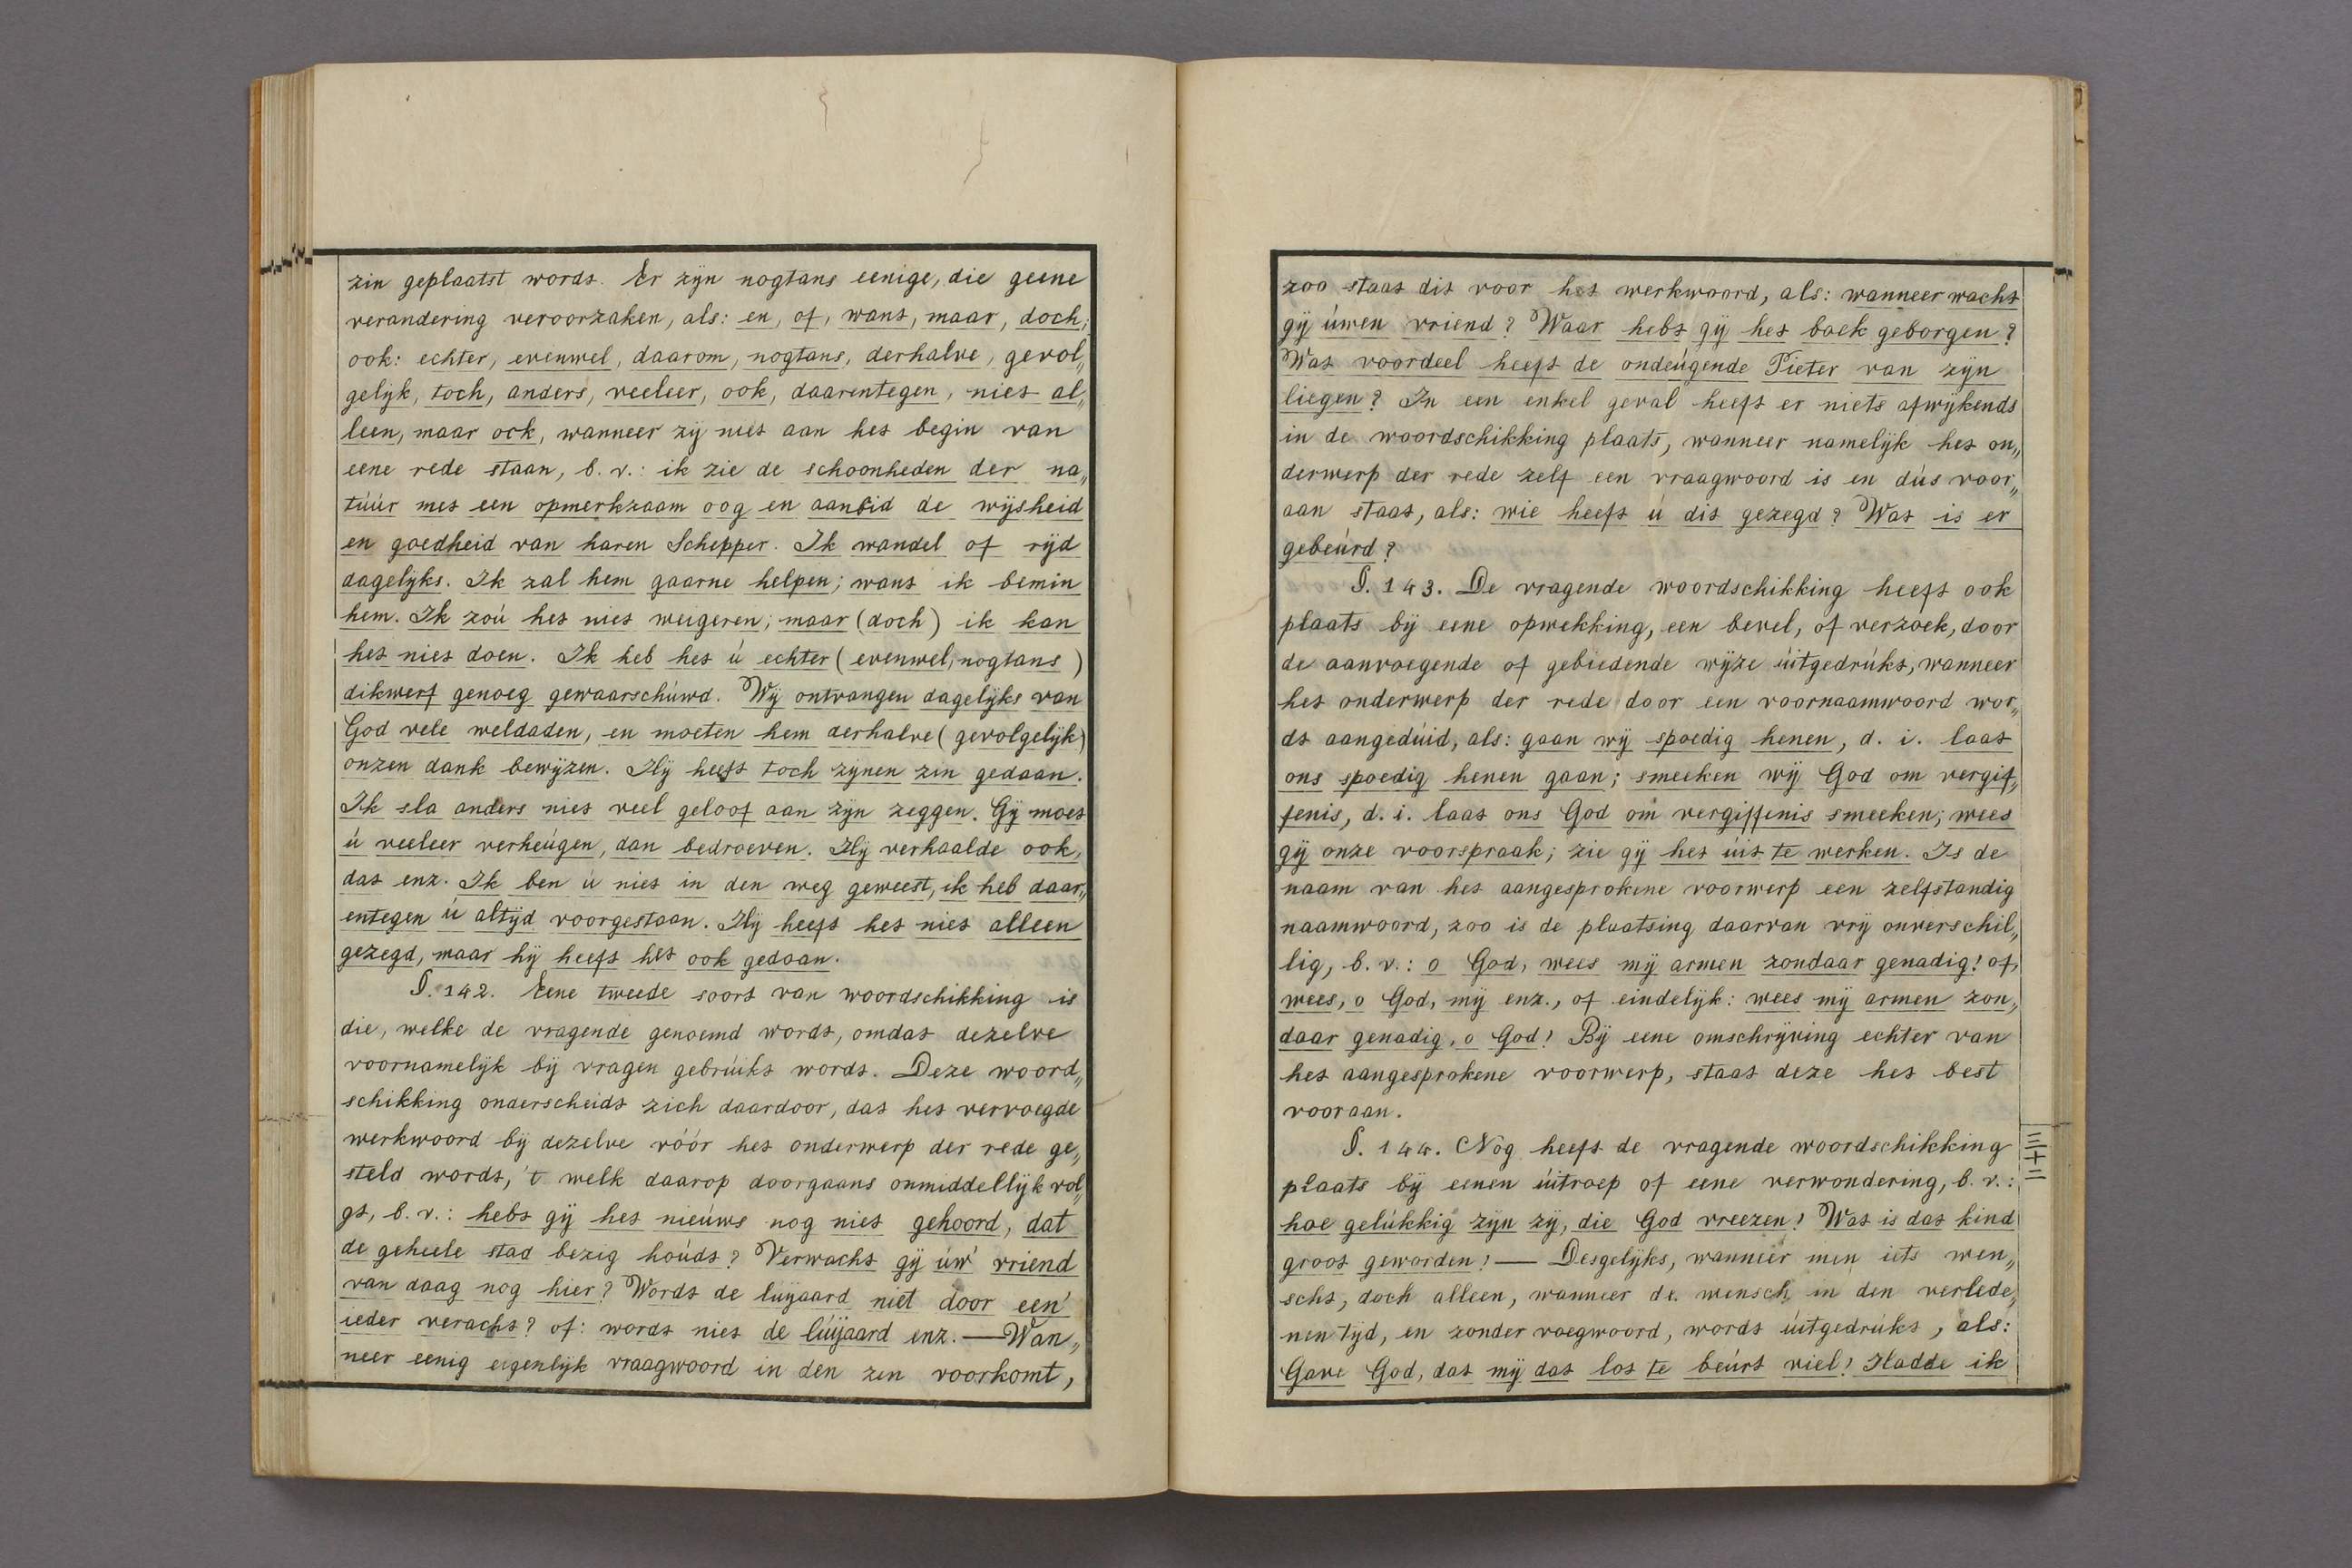 zin geplaatst wordt. Er zijn nogtans eenige, die geene
verandering veroorzaken, als: en, of, want, maar, doch;
ook: echter, evenwel, daarom, nogtans, derhalve, gevol„
gelijk, toch, anders, veeleer, ook, daarentegen, niet al„
leen, maar ook, wanneer zij niet aan het begin van
eene rede staan, b. v.: ik zie de schoonheden der na„
túúr met een opmerkzaam oog en aanbid de wijsheid
en goedheid van haren Schepper. Ik wandel of rijd
dagelijks. Ik zal hem gaarne helpen; want ik bemin
hem. Ik zoú het niet weigeren; maar (doch) ik kan
het niet doen. Ik heb het ú echter (evenwel, nogtans)
dikwerf genoeg gewaarschúwd. Wij ontvangen dagelijks van
God vele weldaden, en moeten hem derhalve (gevolgelijk)
onzen dank bewijzen. Hij heeft toch zijnen zin gedaan.
Ik sla anders niet veel geloof aan zijn zeggen. Gij moet
ú veeleer verheúgen, dan bedroeven. Hij verhaalde ook,
dat enz. Ik ben ú niet in den weg geweest, ik heb daar„
entegen ú altijd voorgestaan. Hij heeft het niet alleen
gezegd, maar hij heeft het ook gedaan.
§. 142. Eene tweede soort van woordschikking is
die, welke de vragende genoemd wordt, omdat dezelve
voornamelijk bij vragen gebrúikt wordt. Deze woord„
schikking onderscheidt zich daardoor, dat het vervoegde
werkwoord bij dezelve vóór het onderwerp der rede ge„
steld wordt, 't welk daarop doorgaans onmiddellijk vol„
gt, b. v.: hebt gij het nieúws nog niet gehoord, dat
de geheele stad bezig hoúdt? Verwacht gij úw' vriend
van daag nog hier? Wordt de lúijaard niet door een'
ieder veracht? of: wordt niet de lúijaard enz. — Wan„
neer eenig eigenlijk vraagwoord in den zin voorkomt,
zoo staat dit voor het werkwoord, als: wanneer wacht
gij úwen vriend? Waar hebt gij het boek geborgen?
Wat voordeel heeft de ondeúgende Pieter van zijn
liegen? In een enkel geval heeft er niets afwijkends
in de woordschikking plaats, wanneer namelijk het on„
derwerp der rede zelf een vraagwoord is en dús voor„
aan staat, als: wie heeft ú dit gezegd? Wat is er
gebeúrd?
§. 143. De vragende woordschikking heeft ook
plaats bij eene opwekking, een bevel, of verzoek, door
de aanvoegende of gebiedende wijze úitgedrúkt, wanneer
het onderwerp der rede door een voornaamwoord wor„
dt aangedúid, als: gaan wij spoedig henen, d. i. laat
ons spoedig henen gaan; smeeken wij God om vergif„
fenis, d. i. laat ons God om vergiffenis smeeken; wees
gij onze voorspraak; zie gij het úit te werken. Is de
naam van het aangesprokene voorwerp een zelfstandig
naamwoord, zoo is de plaatsing daarvan vrij onverschil„
lig, b. v.: o God, wees mij armen zondaar genadig! of,
wees, o God, mij enz., of eindelijk: wees mij armen zon„
daar genadig, o God! Bij eene omschrijving echter van
het aangesprokene voorwerp, staat deze het best
vooraan.
§. 144. Nog heeft de vragende woordschikking
plaats bij eenen úitroep of eene verwondering, b. v.:
hoe gelúkkig zijn zij, die God vreezen! Wat is dat kind
groot geworden! — Desgelijks, wanneer men iets wen„
scht, doch alleen, wanneer de wensch in den verlede„
nen tijd, en zonder voegwoord, wordt úitgedrúkt, als:
Gave God, dat mij dat lot te beúrt viel! Hadde ik
三十二